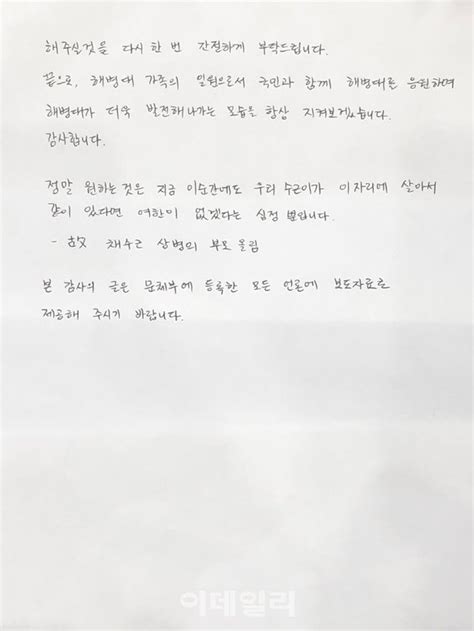 해주실것을 다시 한 번 간절하게 부탁드립니다.
끝으로, 해병대 가족의 일원으로서 국민과 함께 해병대를 응원하며
해병대가 더욱 발전해나가는 모습을 항상 지켜보겠습니다.
감사합니다.
정말 원하는 것은 지금 이순간에도 우리 수근이가 이자리에 살아서
같이 있다면 여한이 없겠다는 심정 뿐입니다.
- 故 채수근 상병의 부모 올림
본 감사의 글은 문체부에 등록한 모든 언론에 보도자료로
제공해 주시기 바랍니다.
이데일리